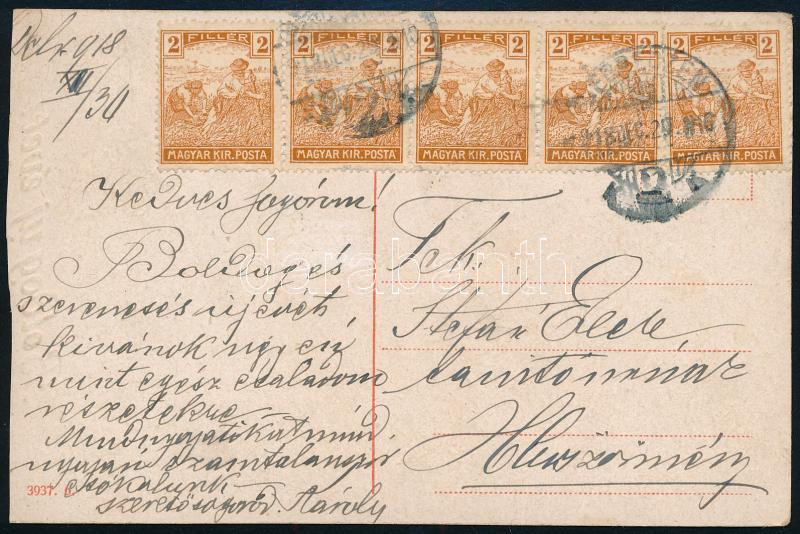 918
XII/30
2 FILLÉR 2
MAGYAR KIR. POSTA
2 FILLÉR 2
MAGYAR KIR. POSTA
2 FILLÉR 2
MAGYAR KIR. POSTA
2 FILLÉR 2
MAGYAR KIR. POSTA
2 FILLÉR 2
MAGYAR KIR. POSTA
918 DEC. 29
918 DEC. 29
Kedves sógórom!
Boldog és
szerencsés újevét
kivánok úgy én
mint egész családom
részetekre
Mindnyájatokat mind
nyáján számtalanszor
csókalunk
szerető sógórod Károly
Tek.
Stefán Elek
tanitónenak
darabanth
3937.